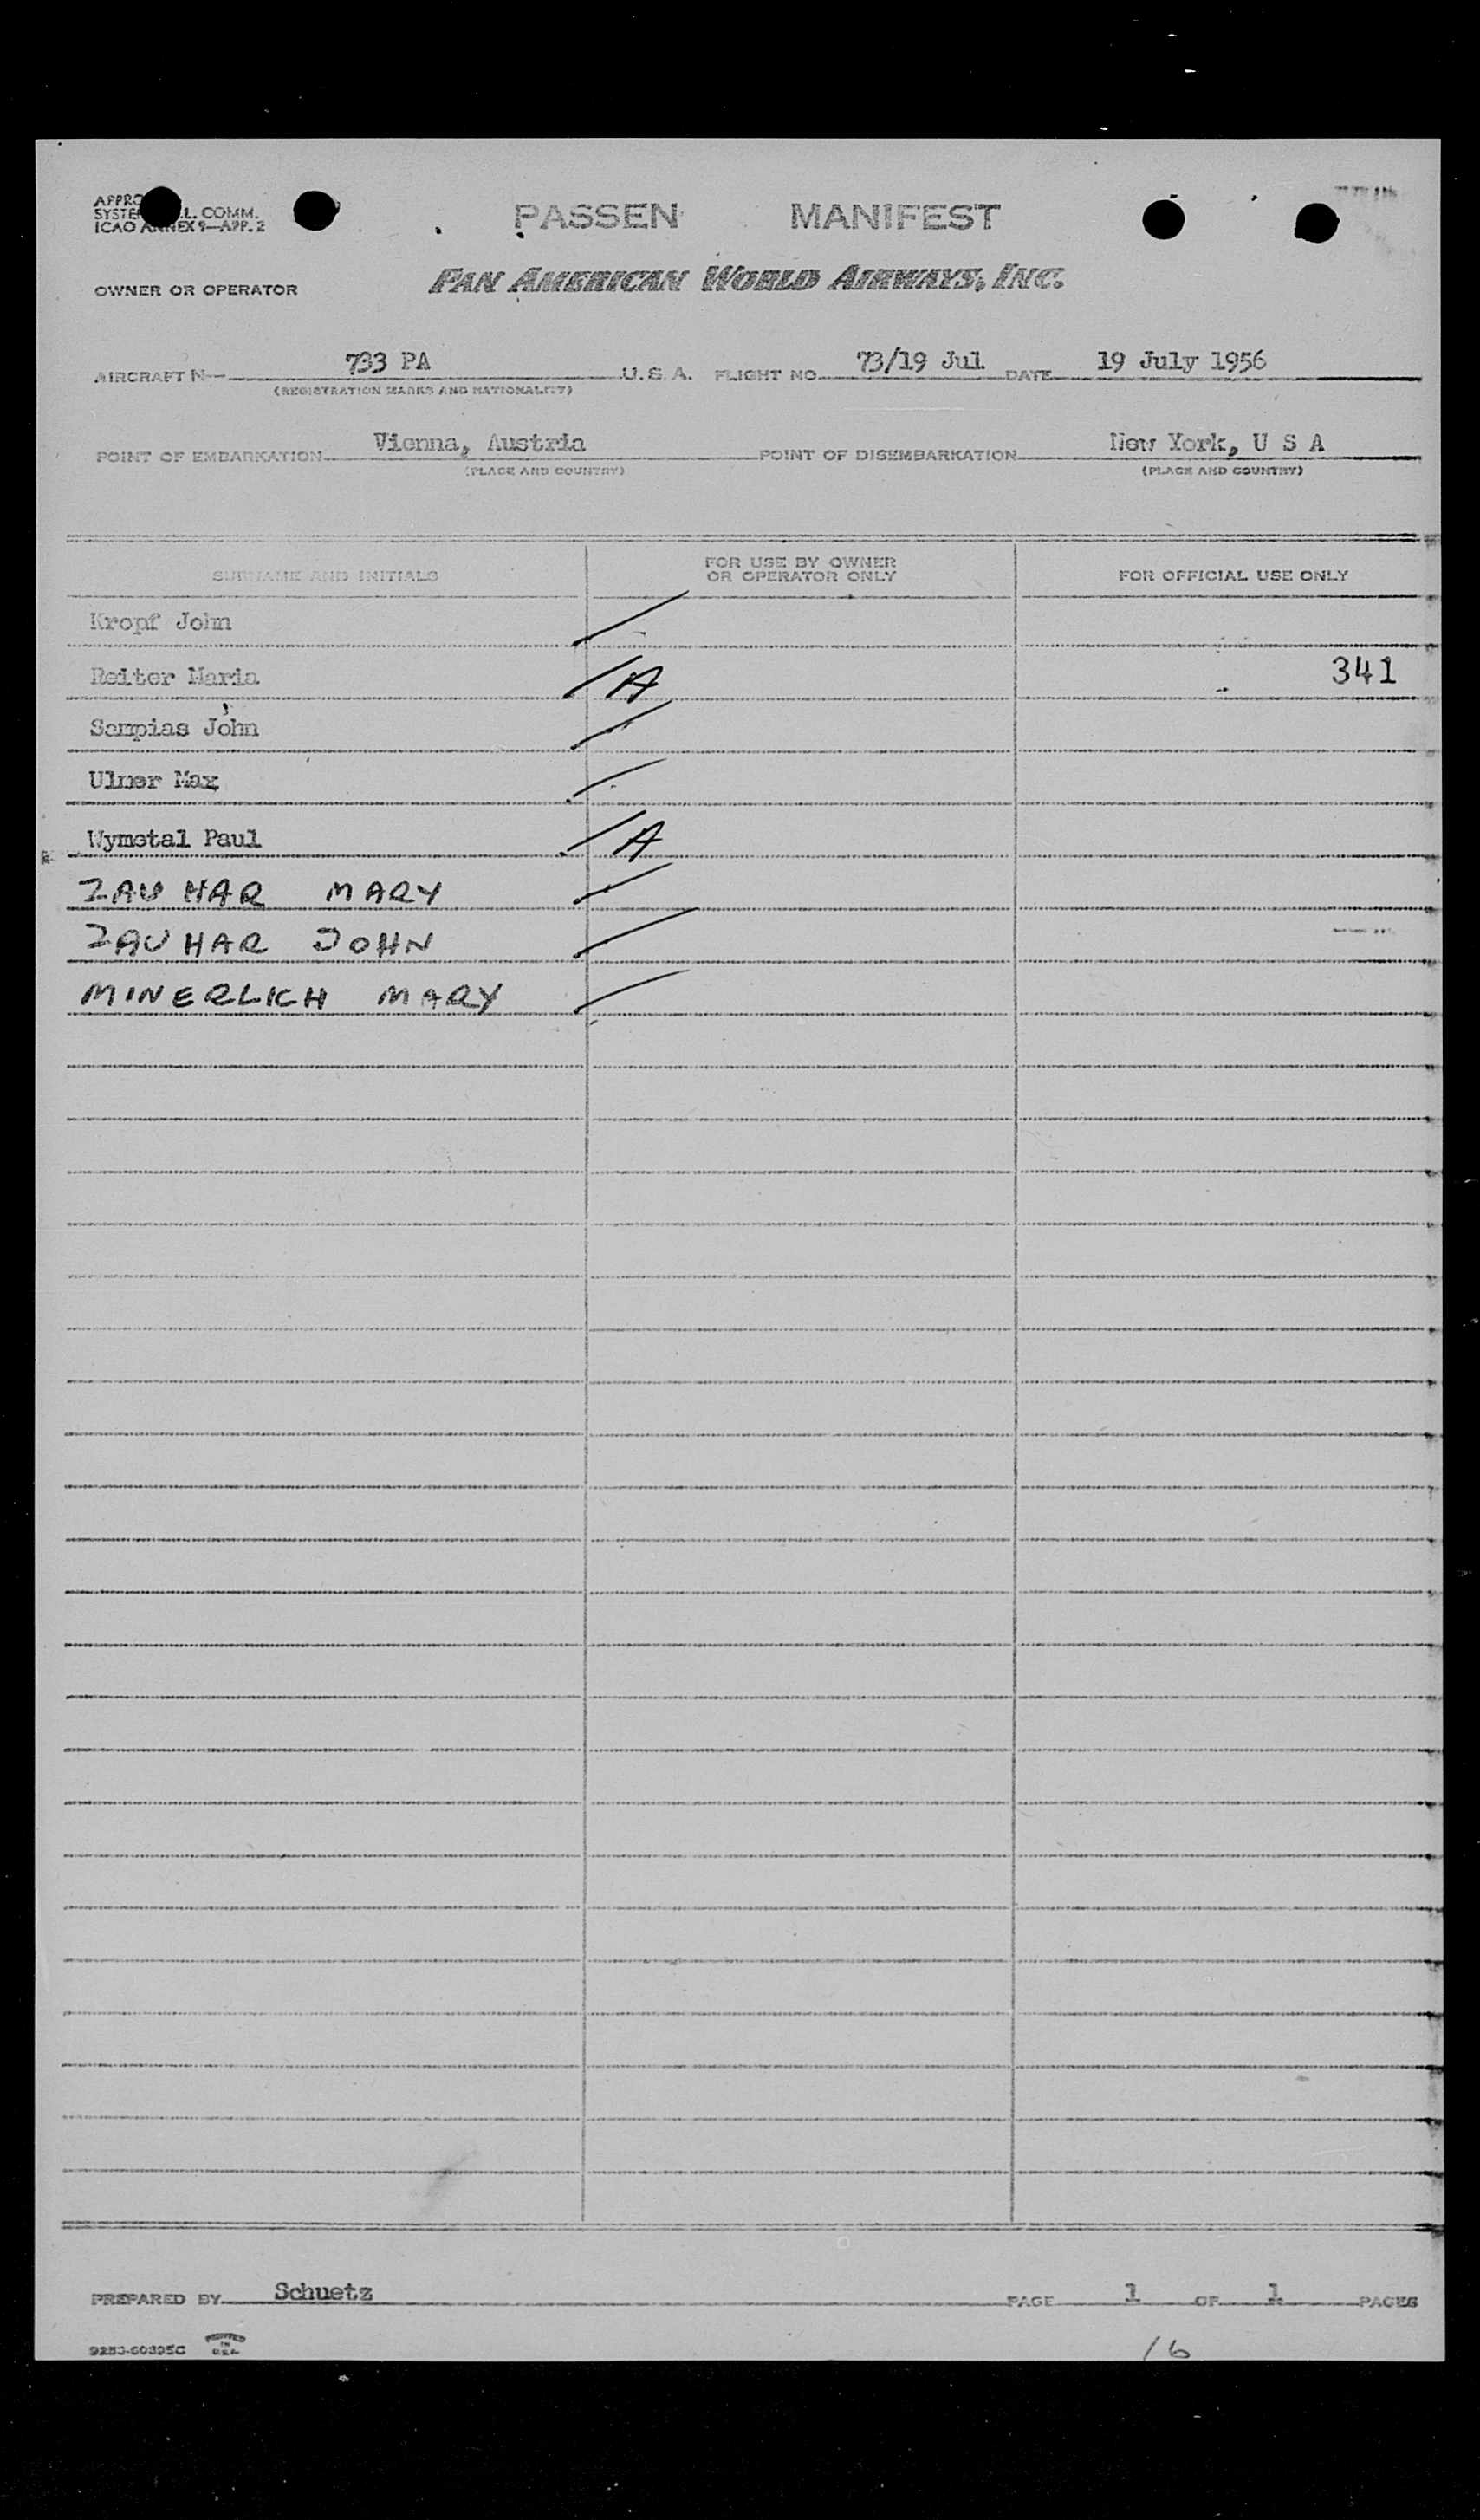 SYSTE L. COMM.
ICAO ANNEX 9—APP. 2
PASSEN MANIFEST
OWNER OR OPERATOR PAN AMERICAN WORLD AIRWAYS, INC.
AIRCRAFT N— 733 PA U. S. A. FLIGHT NO. 73/19 Jul DATE 19 July 1956
(REGISTRATION MARKS AND NATIONALITY)
POINT OF EMBARKATION Vienna, Austria POINT OF DISEMBARKATION New York, U S A
(PLACE AND COUNTRY) (PLACE AND COUNTRY)
SURNAME AND INITIALS FOR USE BY OWNER OR OPERATOR ONLY FOR OFFICIAL USE ONLY
Kropf John
Reiter Maria A 341
Sampias John
Ulner Max
Wymetal Paul A
ZAUHAR MARY
ZAUHAR JOHN
MINERLICH MARY
PREPARED BY Schuetz PAGE 1 OF 1 PAGES
PRINTED IN U.S.A.
16